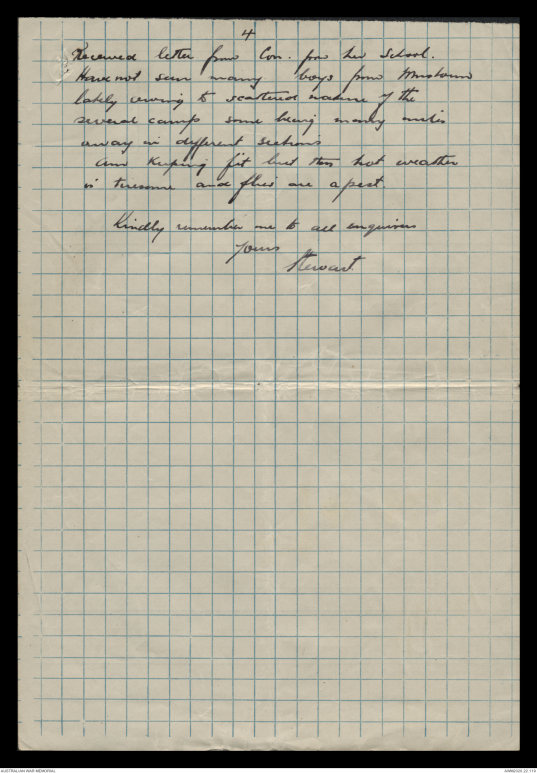 4
Received letter from Con. from her school.
Have not seen many boys from
lately owing to scattered nature of the
several camps some being many miles
away in different sections
Am keeping fit but this hot weather
is tiresome and flies are a pest.
Kindly remember me to all enquirers
Yours
Stewart
AUSTRALIAN WAR MEMORIAL